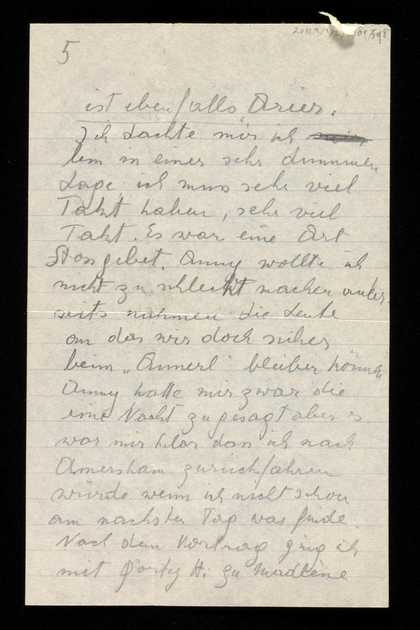 5
ist ebenfalls Arier.
Ich dachte mir ich
bin in einer sehr dummen
Lage, ich muss sehr viel
Takt haben, sehr viel
Takt. Es war eine Art
Stossgebet. Anny wollte ich
nicht zu schlecht machen ander
seits nahmen die Leute
an das wir doch sicher
beim "Annerl" bleiben können
Anny hatte mir zwar die
eine Nacht zugesagt aber es
war mir klar dan ich nach
Amersham zurückfahren
würde wenn ich nicht schon
am nächsten Tag was finde.
Nach dem Vortrag ging ich
mit H. zu